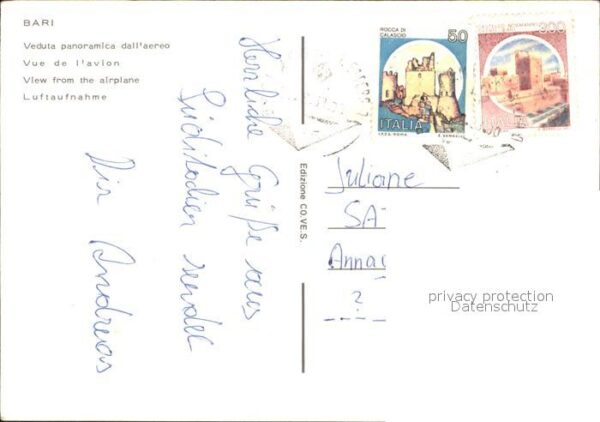 BARI
Veduta panoramica dall'aereo
Vue de l'avion
View from the airplane
Luftaufnahme
Herzliche Grüße aus
Süditalien sendet
Dir Andreas
Edizione CO.VE.S.
ROCCA DI
CALASCIO
50
ITALIA
I.P.Z.S. ROMA
300
ITALIA
Juliane
SA
Anna
2
privacy protection
Datenschutz